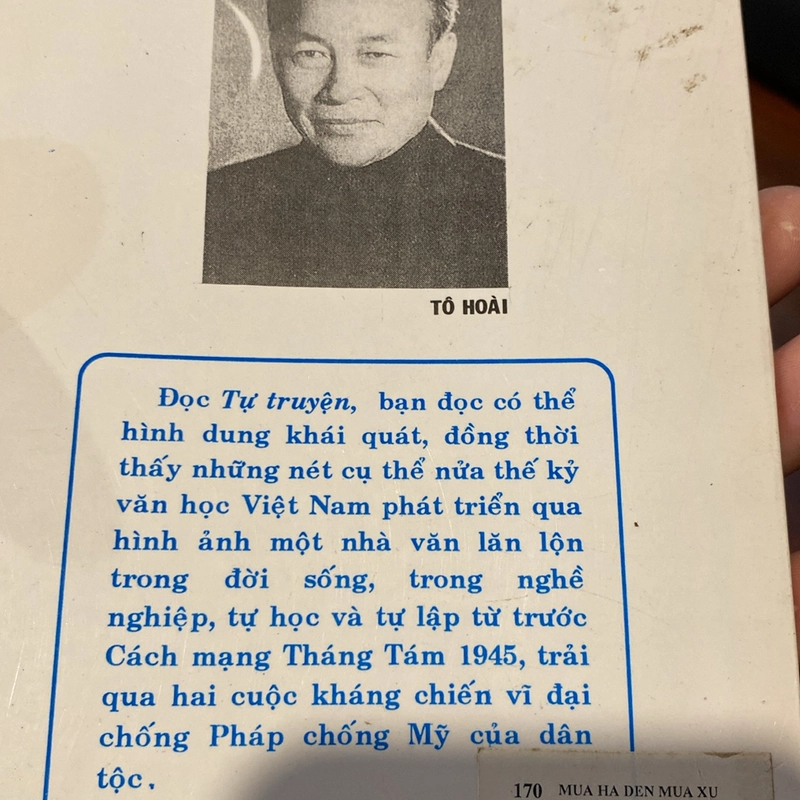 TÔ HOÀI
Đọc Tự truyện, bạn đọc có thể
hình dung khái quát, đồng thời
thấy những nét cụ thể nửa thế kỷ
văn học Việt Nam phát triển qua
hình ảnh một nhà văn lăn lộn
trong đời sống, trong nghề
nghiệp, tự học và tự lập từ trước
Cách mạng Tháng Tám 1945, trải
qua hai cuộc kháng chiến vĩ đại
chống Pháp chống Mỹ của dân
tộc.
170 MUA HA DEN MUA XU